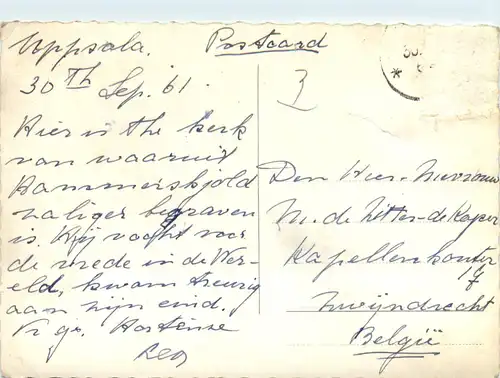 Uppsala.
Postcard
30 Th Sep. '61.
3
Hier is the kerk
van waaruit
Hammerskjold
zaliger begraven
is. Hij vocht voor
de vrede in de Wer-
eld, kwam treurig
aan zijn eind.
Vr gr. Hortense
Leo
Den Heer - Mevrouw
M. de Zitter - de Kaper
Kapellenhouter
17
Zwijndrecht
België